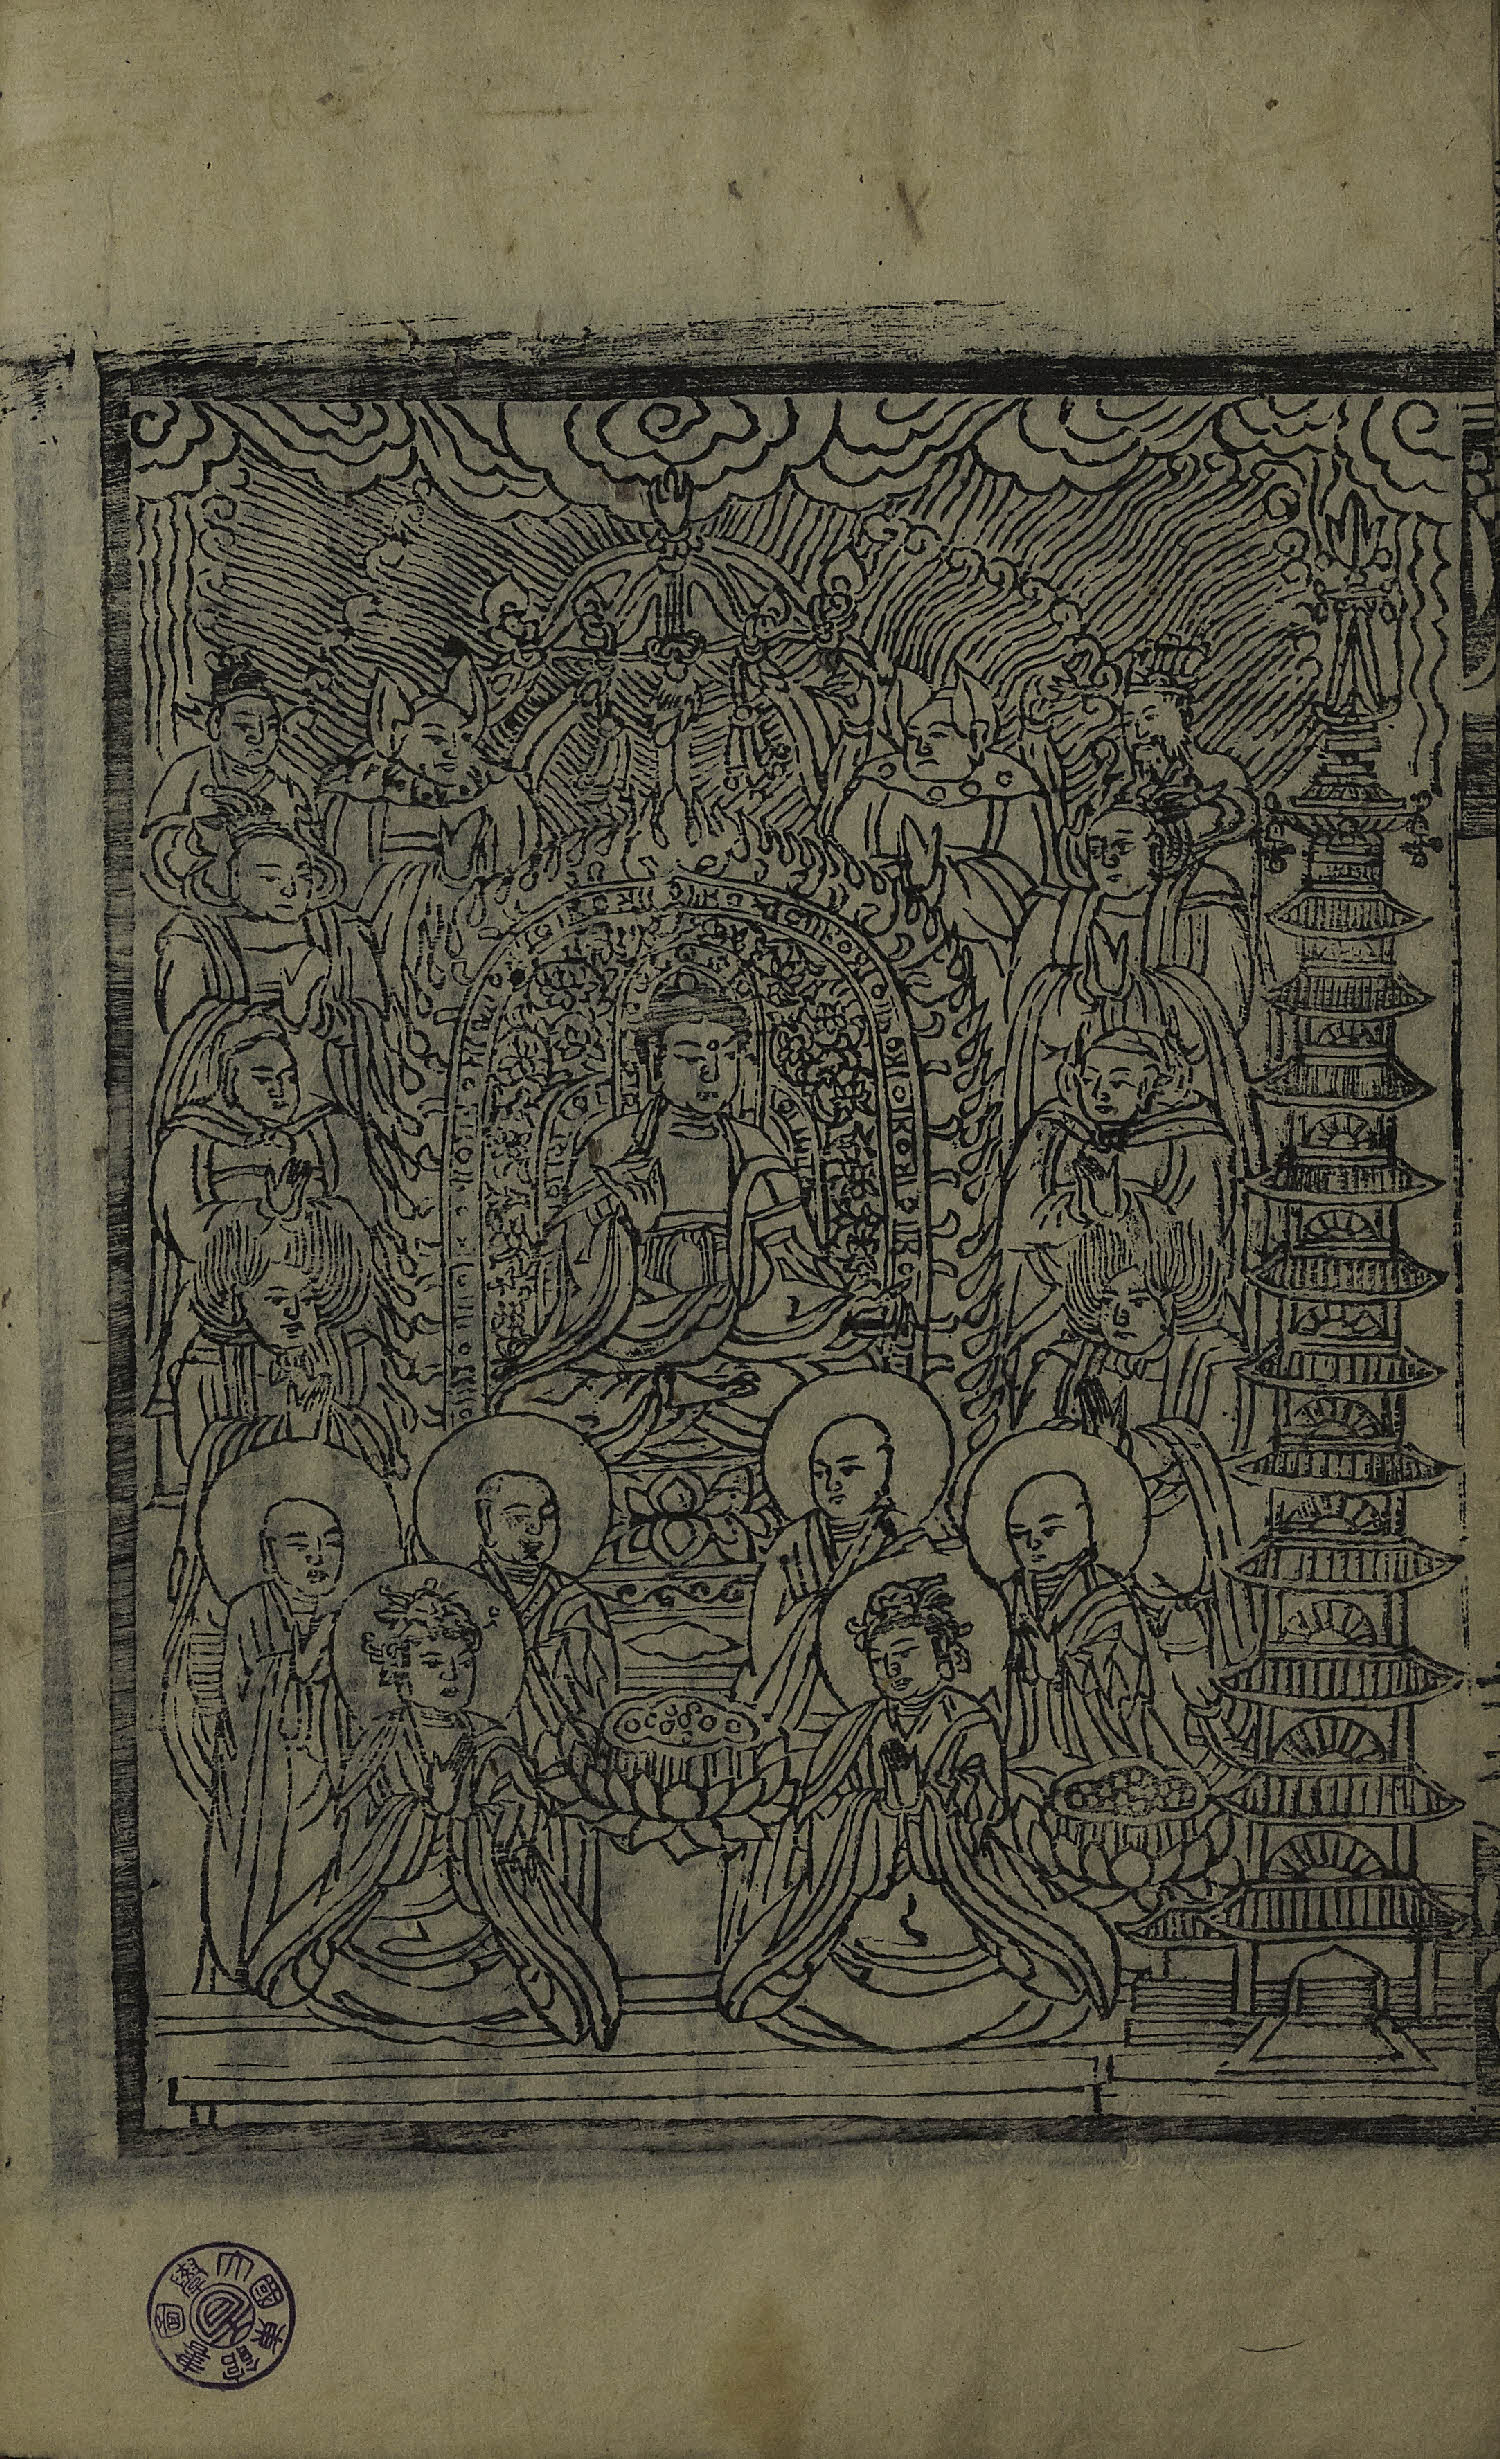 東國大學圖書館